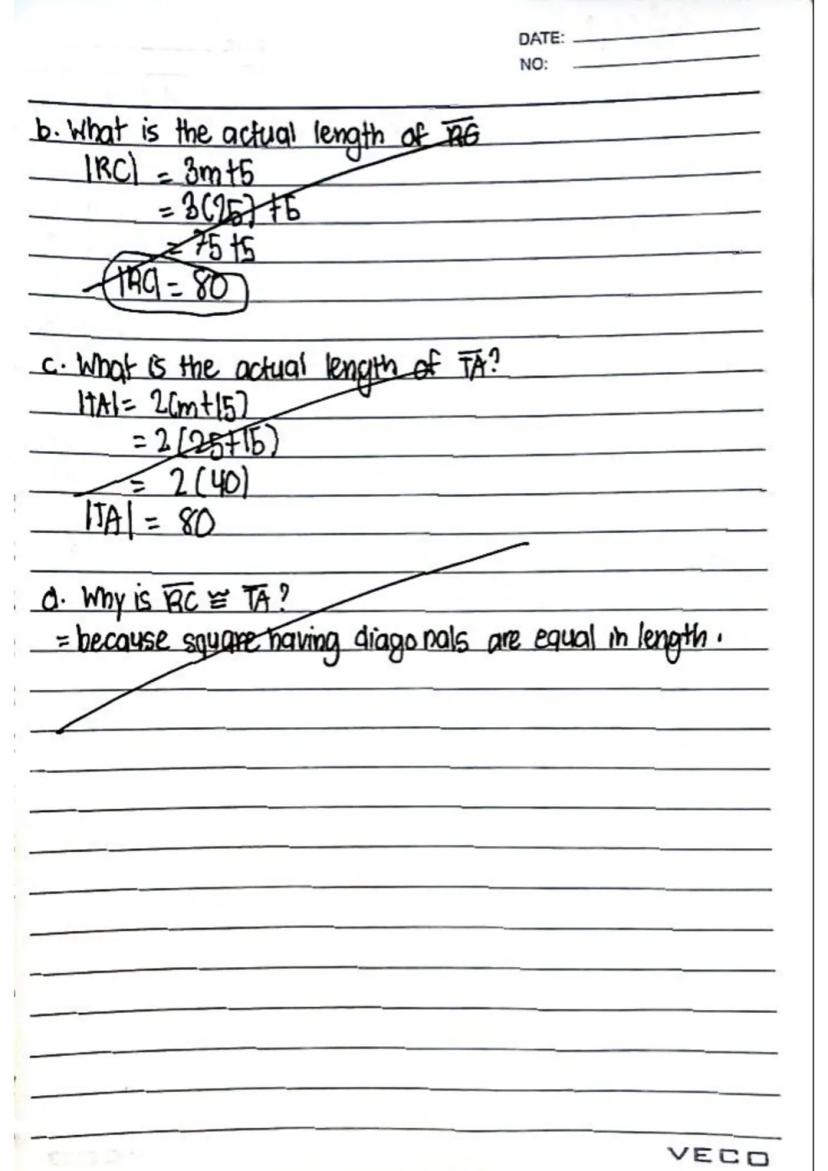 DATE:
NO:
b. What is the actual length of RG
|RC| = 3m+5
= 3(25) +5
= 75 +5
|RC| = 80
c. What is the actual length of TA?
|TA| = 2(m+15)
= 2(25+15)
= 2(40)
|TA| = 80
d. Why is RC ≅ TA?
= because square having diagonals are equal in length.
VECO